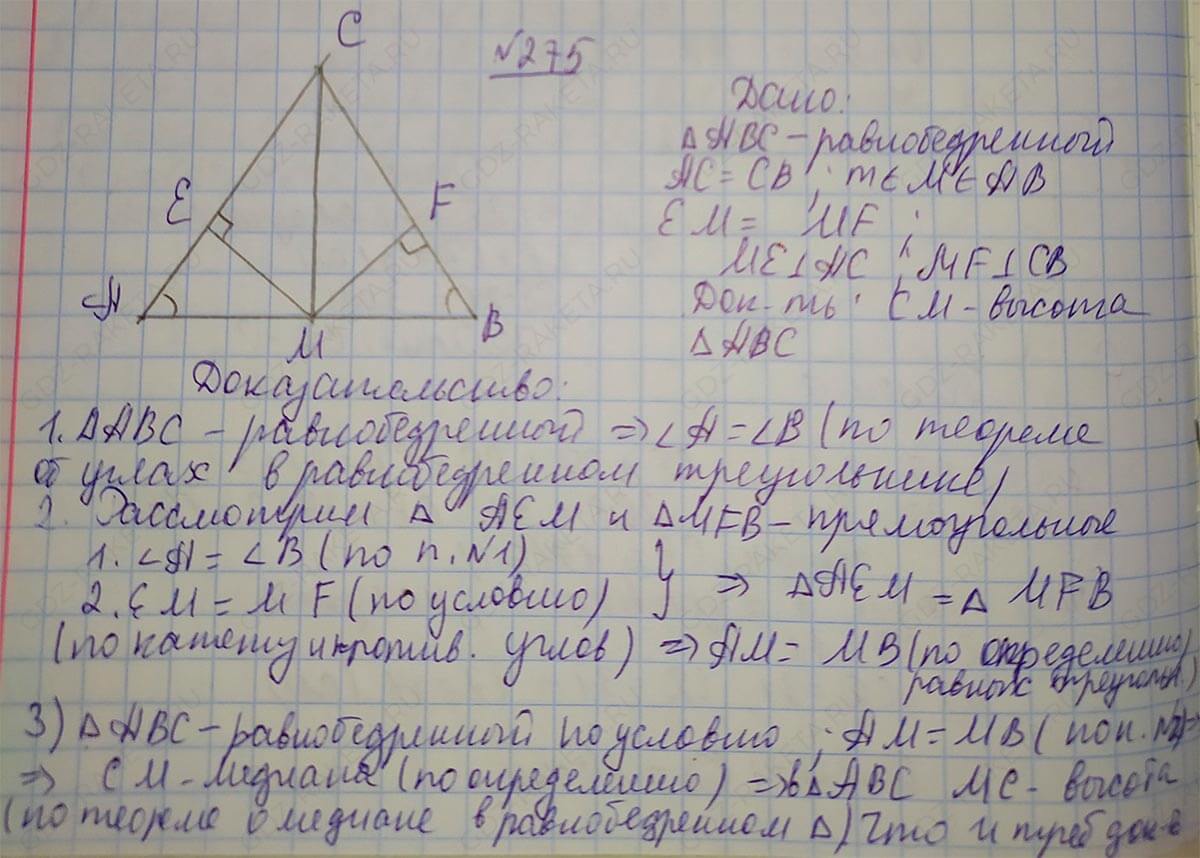 №275
C
Дано:
△ABC – равнобедренный
AC = CB ; т ∈ M ∈ AB
E
F
EM = MF ;
ME ⊥ AC ; MF ⊥ CB
A
B
M
Док-ть: CM – высота
△ABC
Доказательство:
1. △ABC – равнобедренный ⇒ ∠A = ∠B (по теореме
об углах в равнобедренном треугольнике)
2. Рассмотрим △ AEM и △MFB – прямоугольные
1. ∠A = ∠B (по п. №1)
2. EM = MF (по условию) } ⇒ △AEM = △ MFB
(по катету и против. углов) ⇒ AM = MB (по определению
равных треугольн.)
3) △ABC – равнобедренный по условию ; AM = MB (по п. №2) ⇒
⇒ CM – медиана (по определению) ⇒ в △ABC MC – высота
(по теореме о медиане в равнобедренном △) Что и треб док-ть
GDZ-RAKETA.RU